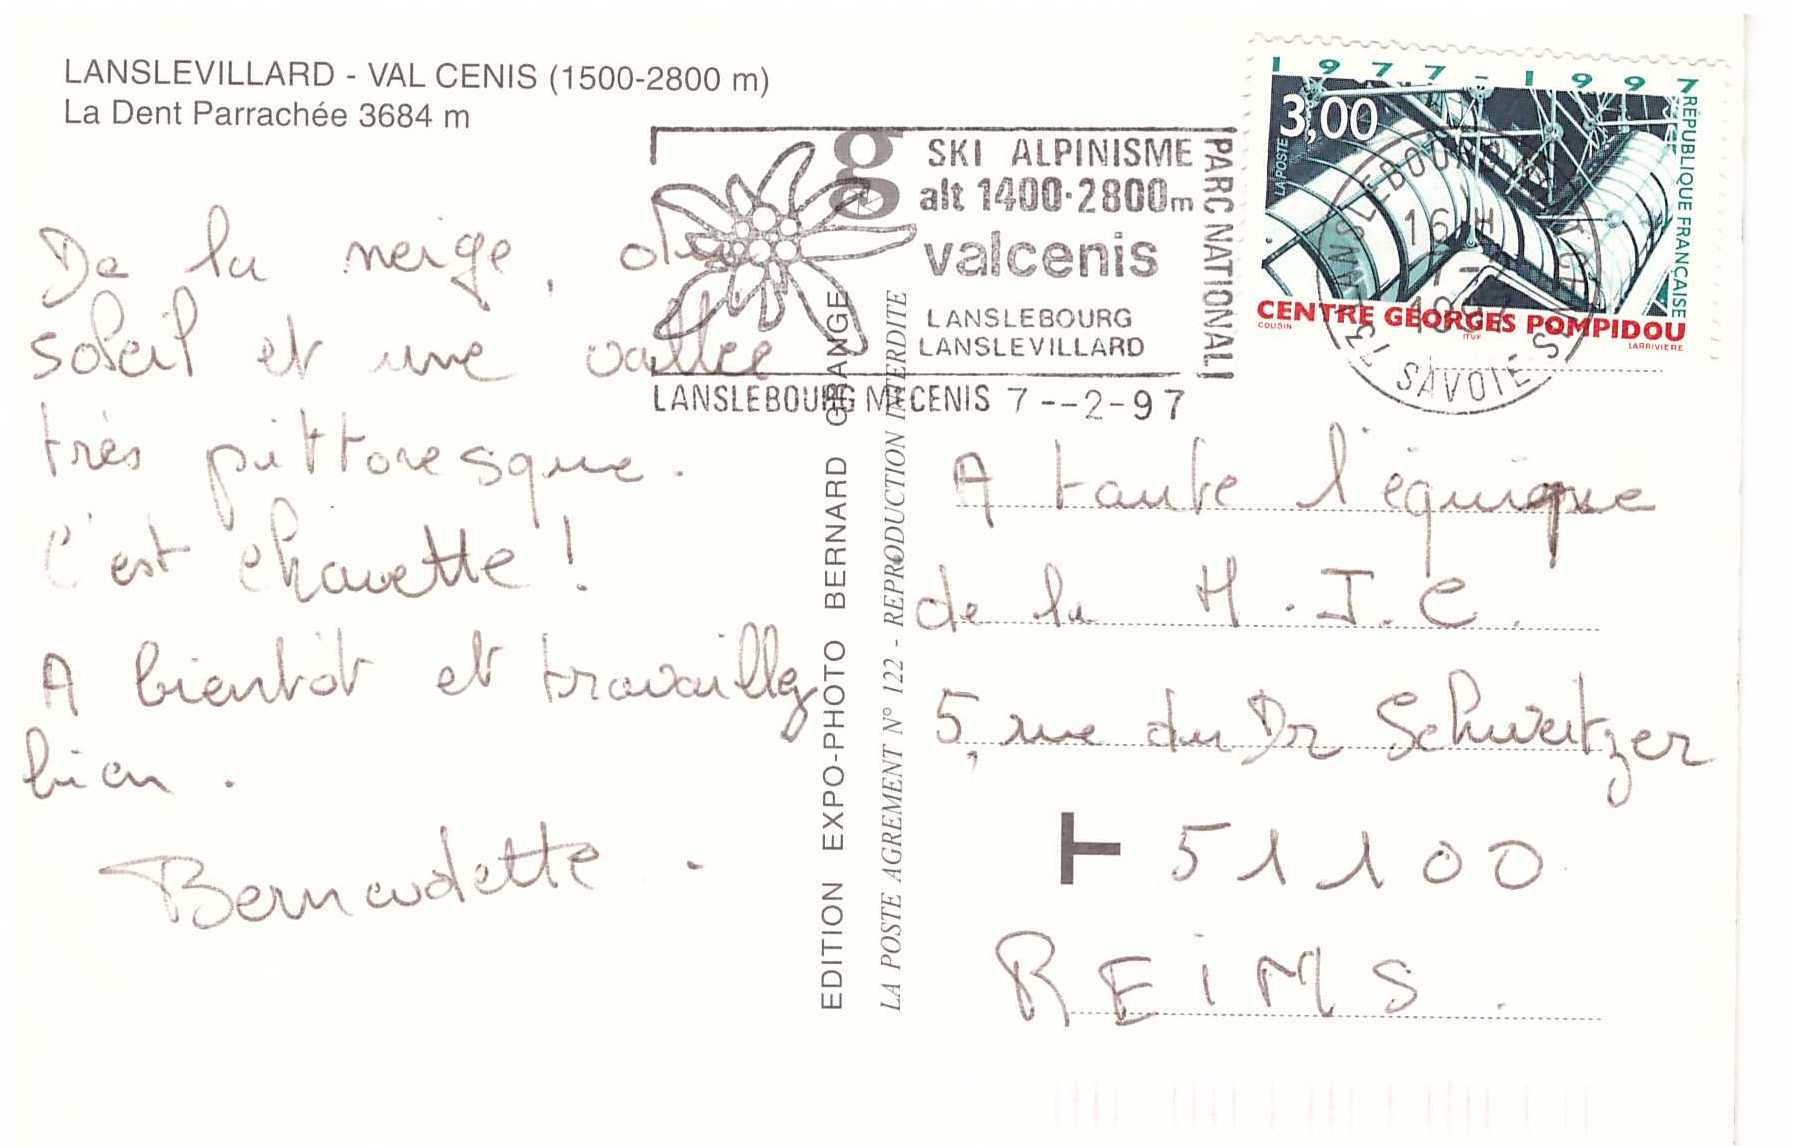 LANSLEVILLARD - VAL CENIS (1500-2800 m)
La Dent Parrachée 3684 m
De la neige, du
soleil et une vallée
très pittoresque.
C'est chouette !
A bientôt et travaillez
bien.
Bernadette.
EDITION EXPO-PHOTO BERNARD GRANGE
LA POSTE AGREMENT N° 122 - REPRODUCTION INTERDITE
g
SKI ALPINISME
alt 1400·2800m
valcenis
LANSLEBOURG
LANSLEVILLARD
PARC NATIONAL
LANSLEBOURG MT CENIS 7--2-97
1977-1997
3,00
LA POSTE
RÉPUBLIQUE FRANÇAISE
CENTRE GEORGES POMPIDOU
COUSIN
ITVF
LARRIVIERE
16 H
7
19
73 SAVOIE
A toute l'équipe
de la M.J.C.
5, rue du Dr Schweitzer
51100
REIMS.